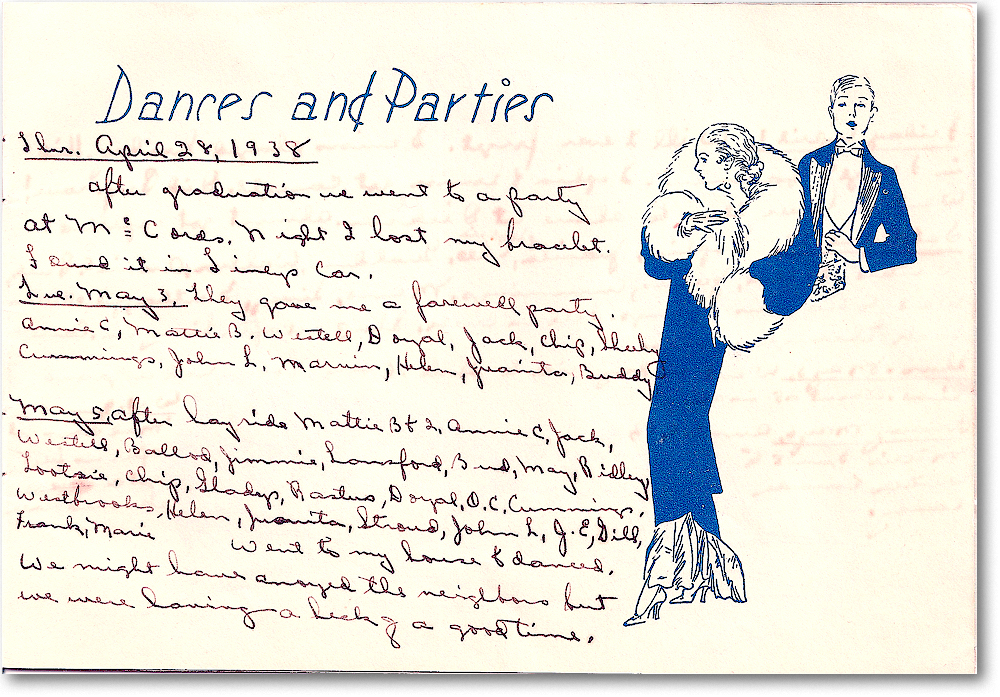 Dances and Parties
Thr. April 28, 1938
after graduation we went to a party
at McCords. Night I lost my bracelet.
Found it in Liney's Car.
Tue. May 3. They gave me a farewell party.
Annie C, Mattie B. Westell, Doyal, Jack, Chip, Sheely
Cummings, John L, Marvin, Helen, Juanita, Buddy
May 5, after hayride Mattie B & I, Annie C, Jack,
Westell, Ballod, Jimmie, Lansford, Bud, May, Ridley
Tootsie, Chip, Gladys, Rastus, Doyal, O.C. Cummings,
Westbrooks, Helen, Juanita, Stroud, John L, J.E, Dill,
Frank, Marie Went to my house & danced.
We might have anoyed the neighbors but
we were having a heck of a good time.